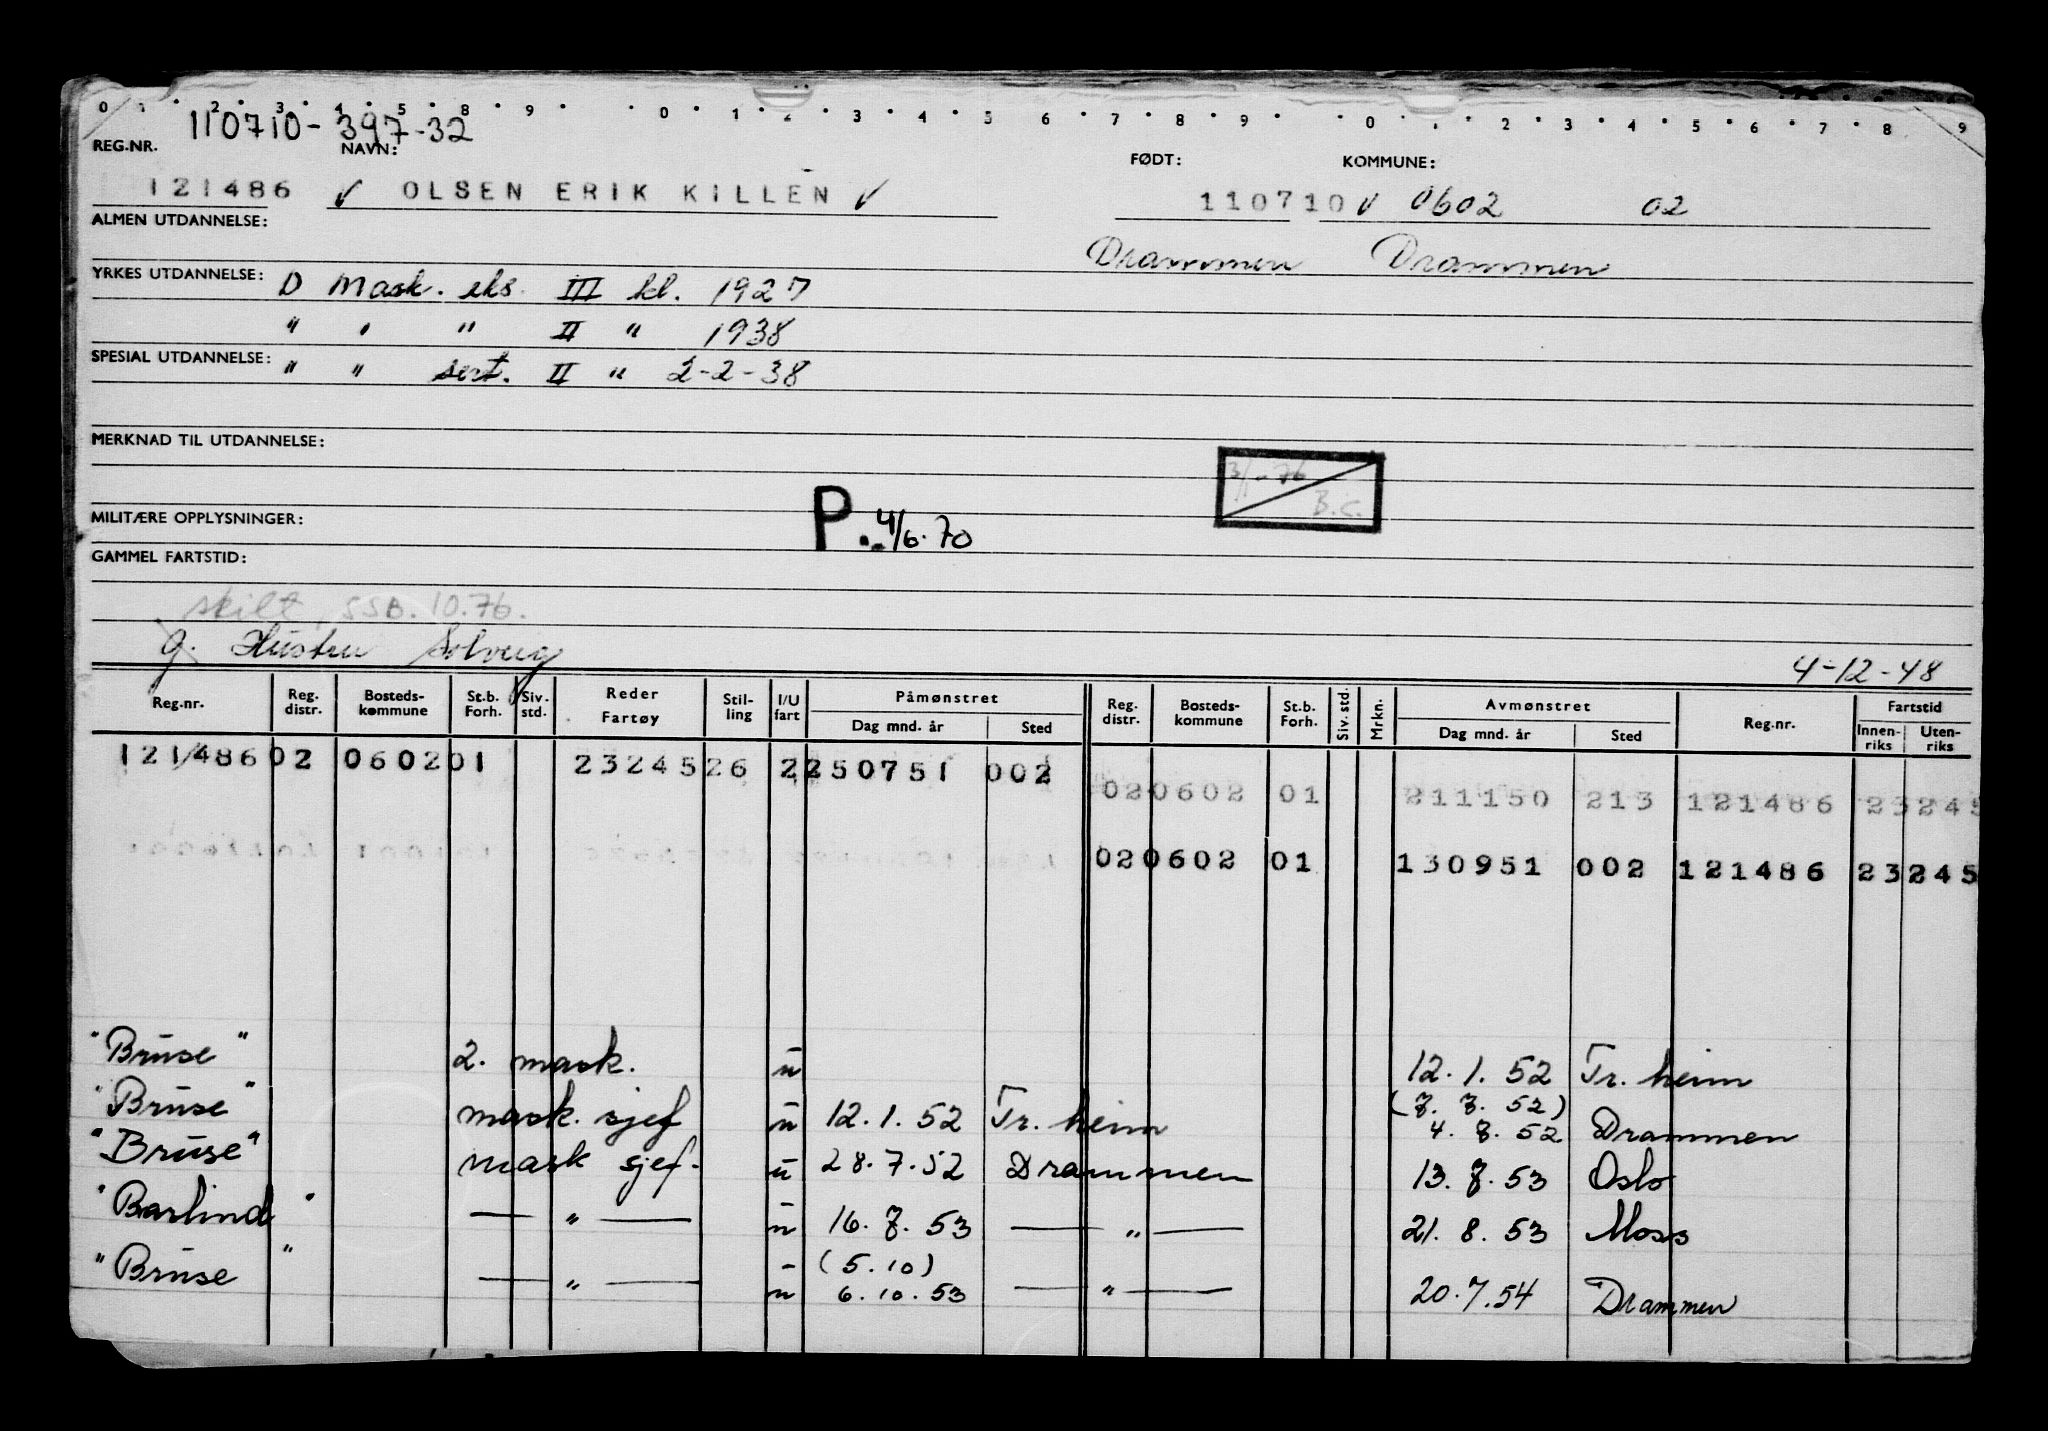 0 1 2 3 4 5 8 9 0 1 2 3 4 5 6 7 8 9 0 1 2 3 4 5 6 7 8 9
110710-397-32
REG.NR. NAVN: FØDT: KOMMUNE:
121486 ✓ OLSEN ERIK KILLEN ✓ 110710 ✓ 0602 02
ALMEN UTDANNELSE:
Drammen Drammen
YRKES UTDANNELSE: D Mask. eks. III kl. 1927
" " " II " 1938
SPESIAL UTDANNELSE: " " sert. II " 2-2-38
MERKNAD TIL UTDANNELSE:
3/1-76 B.C.
MILITÆRE OPPLYSNINGER: P. 4/6.70
GAMMEL FARTSTID:
skilt, SSB. 10.76.
g. Hustru Solveig
4-12-48
Reg.nr. Reg. distr. Bosteds-kommune St.b. Forh. Siv. std. Reder Fartøy Stil-ling I/U fart Påmønstret Dag mnd. år Sted Reg. distr. Bosteds-kommune St.b. Forh. Siv. std. Mrkn. Avmønstret Dag mnd. år Sted Reg.nr. Fartstid Innen-riks Uten-riks
121486 02 0602 01 23245 26 2 250751 002
02 0602 01 211150 213 121486 23245
02 0602 01 130951 002 121486 23245
"Bruse" 2. mask. u 12.1.52 Tr.heim
"Bruse" mask. sjef u 12.1.52 Tr.heim (7.7.52) 4.7.52 Drammen
"Bruse" mask sjef. u 28.7.52 Drammen 13.7.53 Oslo
"Barlind" — " — u 16.7.53 — " — 21.8.53 Moss
"Bruse" — " — u (5.10) 6.10.53 — " — 20.7.54 Drammen